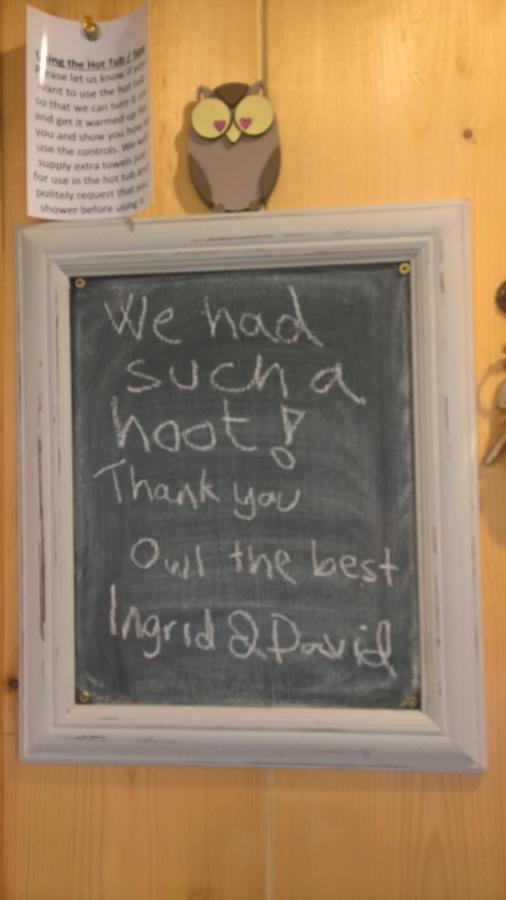 Using the Hot Tub / Spa
Please let us know if you
want to use the hot tub
so that we can turn it on
and get it warmed up for
you and show you how to
use the controls. We will
supply extra towels just
for use in the hot tub and
politely request that you
shower before using it.
We had
such a
hoot!
Thank you
Owl the best
Ingrid & David